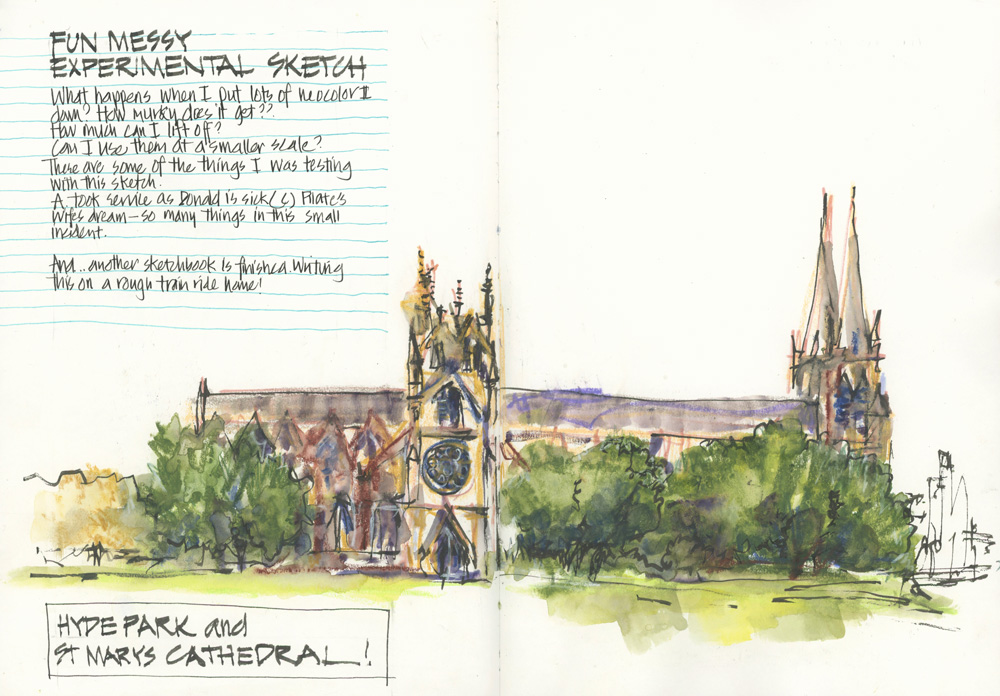 FUN MESSY
EXPERIMENTAL SKETCH
What happens when I put lots of neocolor II
down? How murky does it get??
How much can I lift off?
Can I use them at a smaller scale?
These are some of the things I was testing
with this sketch.
A took service as Donald is sick( Pilate's
Wifes dream - so many things in this small
incident.
And.. another sketchbook is finished. Writing
this on a rough train ride home!
HYDE PARK and
ST MARYS CATHEDRAL!